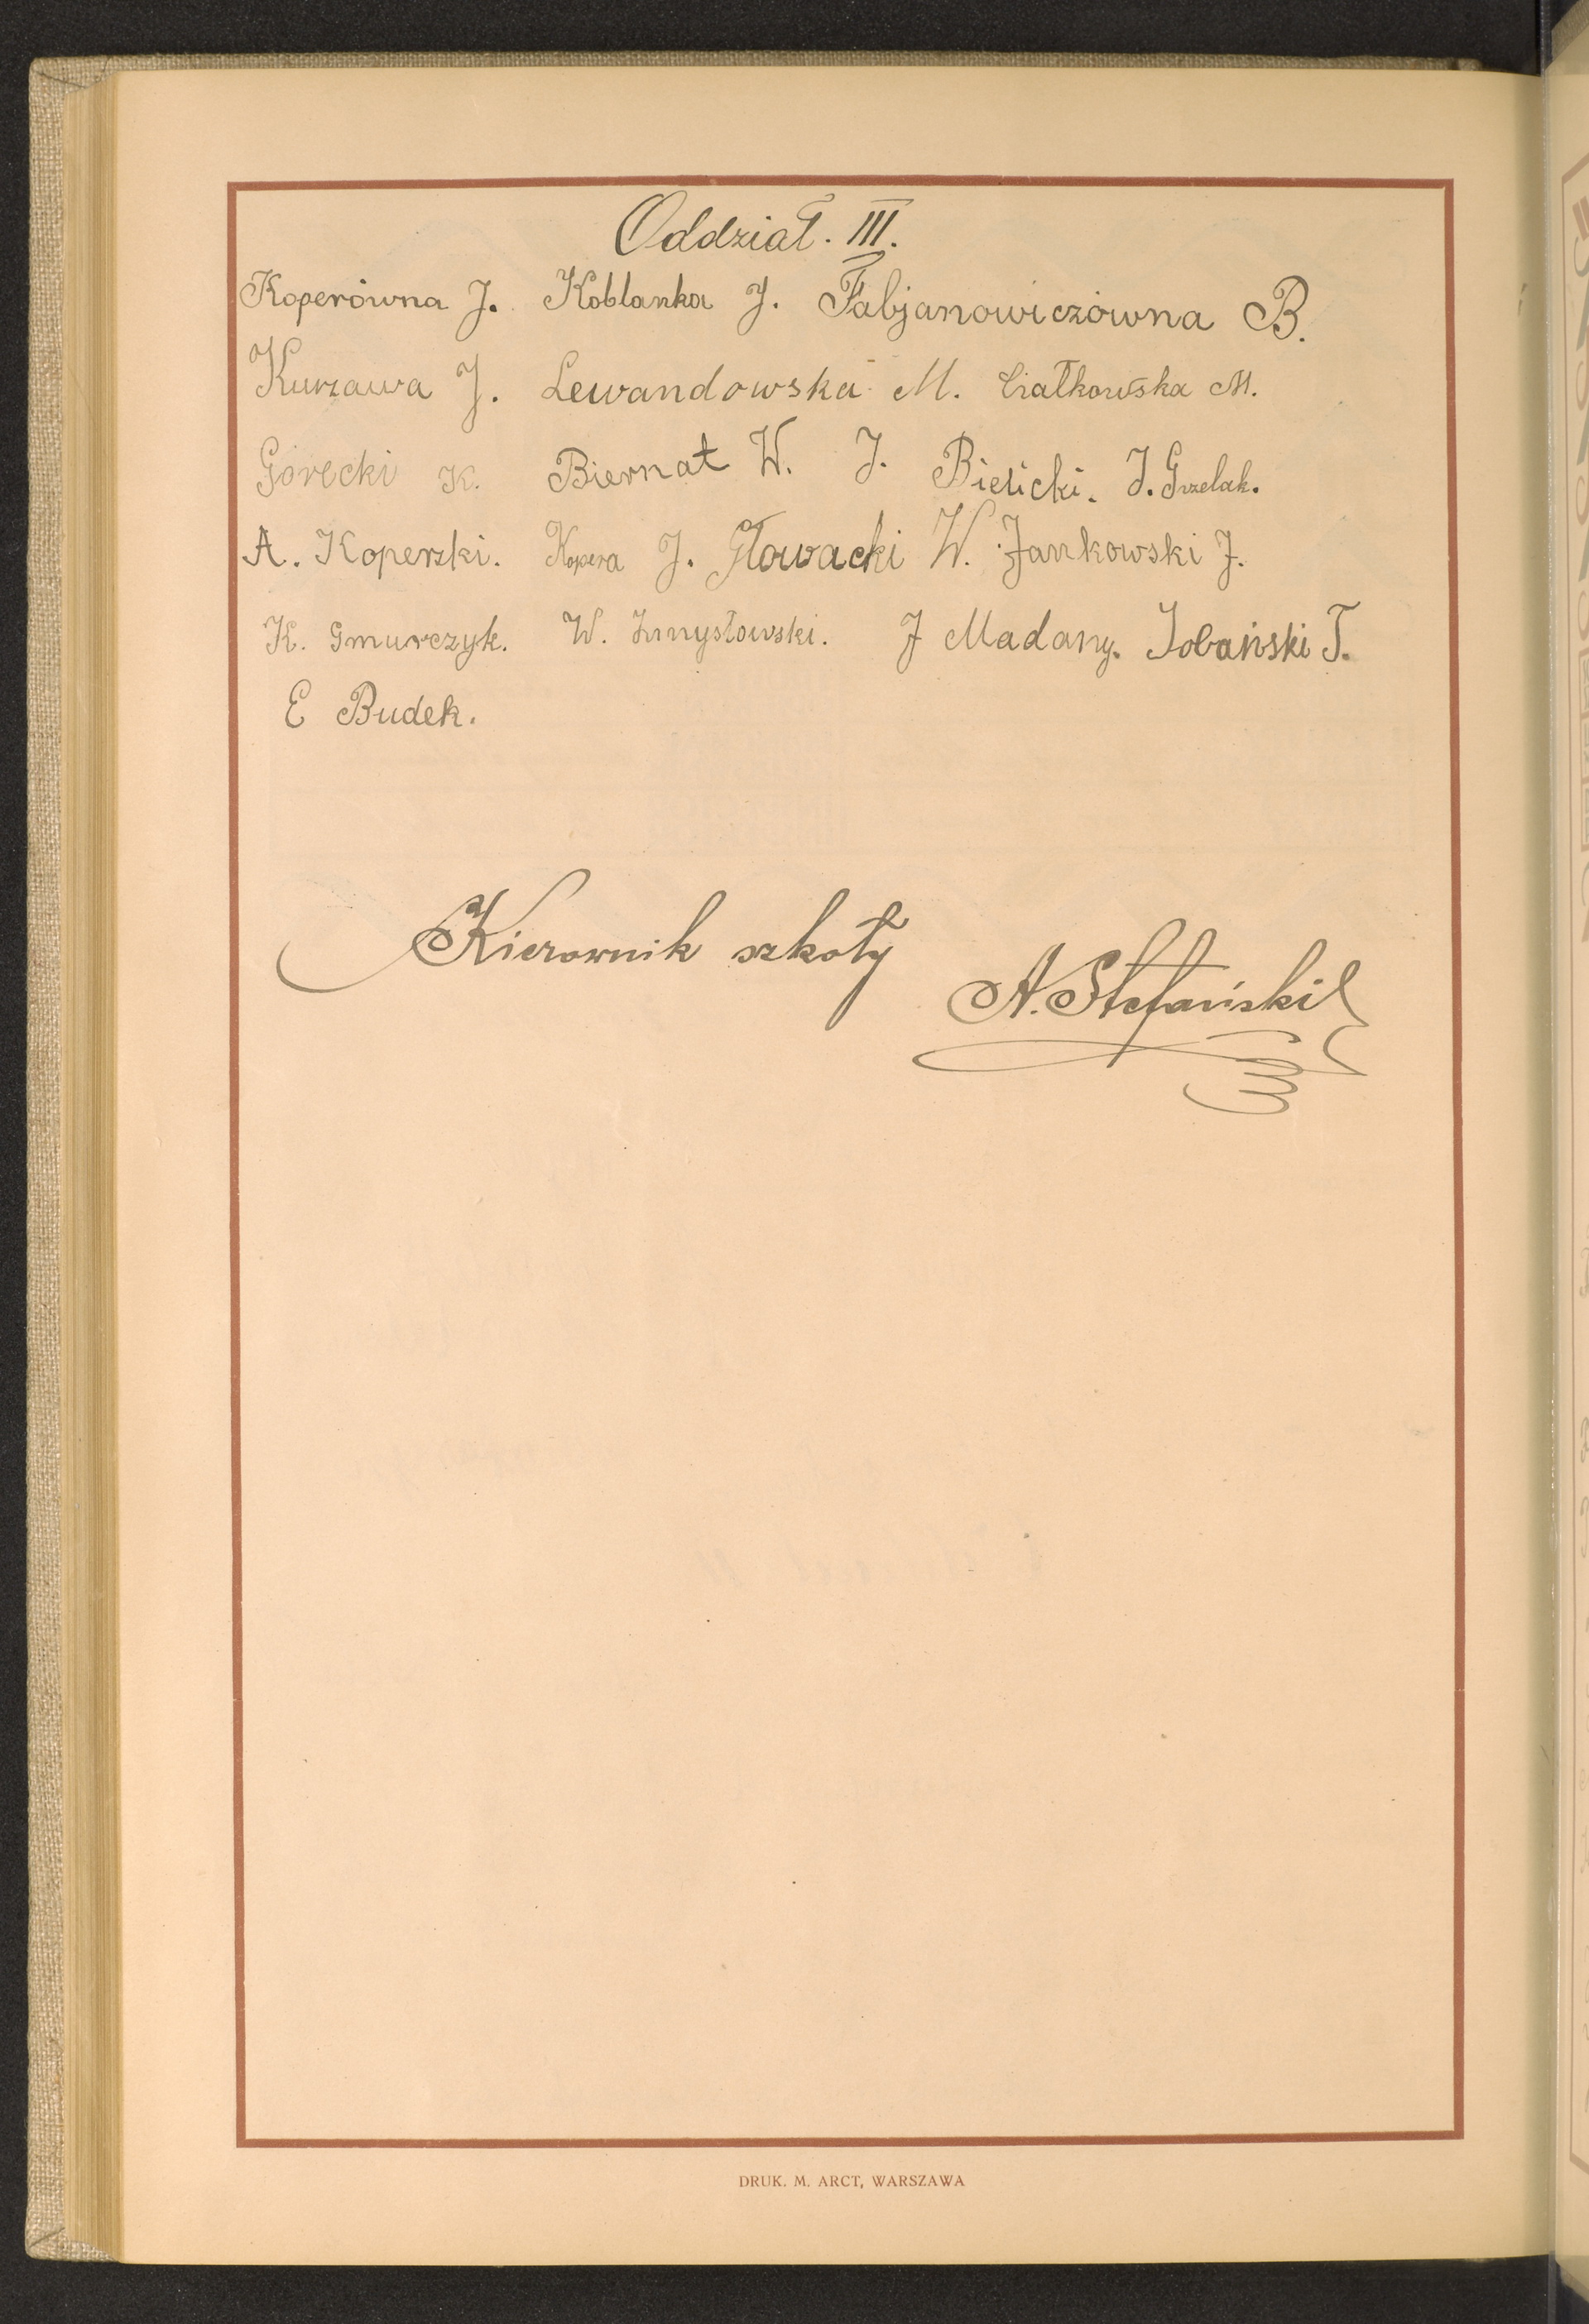 Oddział. III.
Koperówna J. Koblanka J. Fabjanowiczówna B.
Kurzawa J. Lewandowska M. Ciałkowska M.
Górecki K. Biernat W. J. Bielicki. J. Grzelak.
A. Koperski. Kopera J. Głowacki W. Jankowski J.
K. Gmurczyk. W. Zmysłowski. J Madany. Sobański T.
E Budek.
Kierownik szkoły
A. Stefański
DRUK. M. ARCT, WARSZAWA